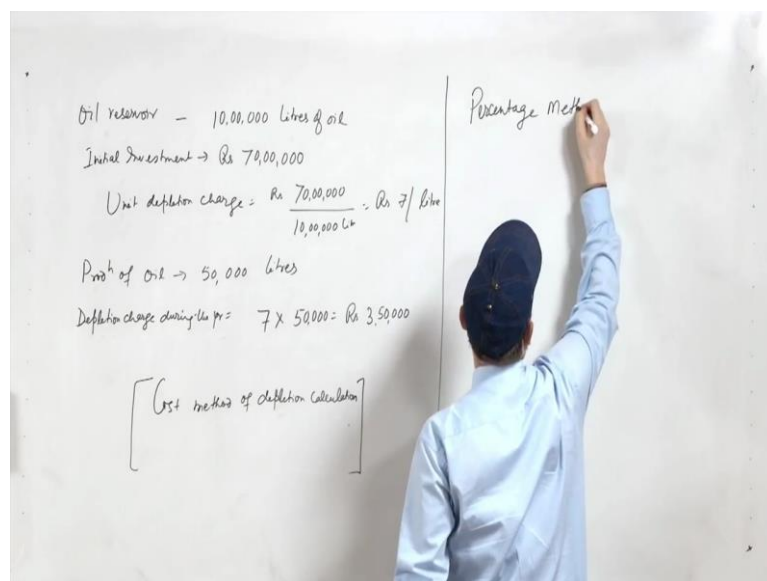 Oil reservoir — 10,00,000 Litres of oil
Initial Investment → Rs 70,00,000
Unit depletion charge = Rs 70,00,000 / 10,00,000 Lit = Rs 7/ litre
Prodn of oil → 50,000 litres
Depletion charge during the yr = 7 × 50,000 = Rs 3,50,000
[Cost method of depletion calculation]
Percentage Meth